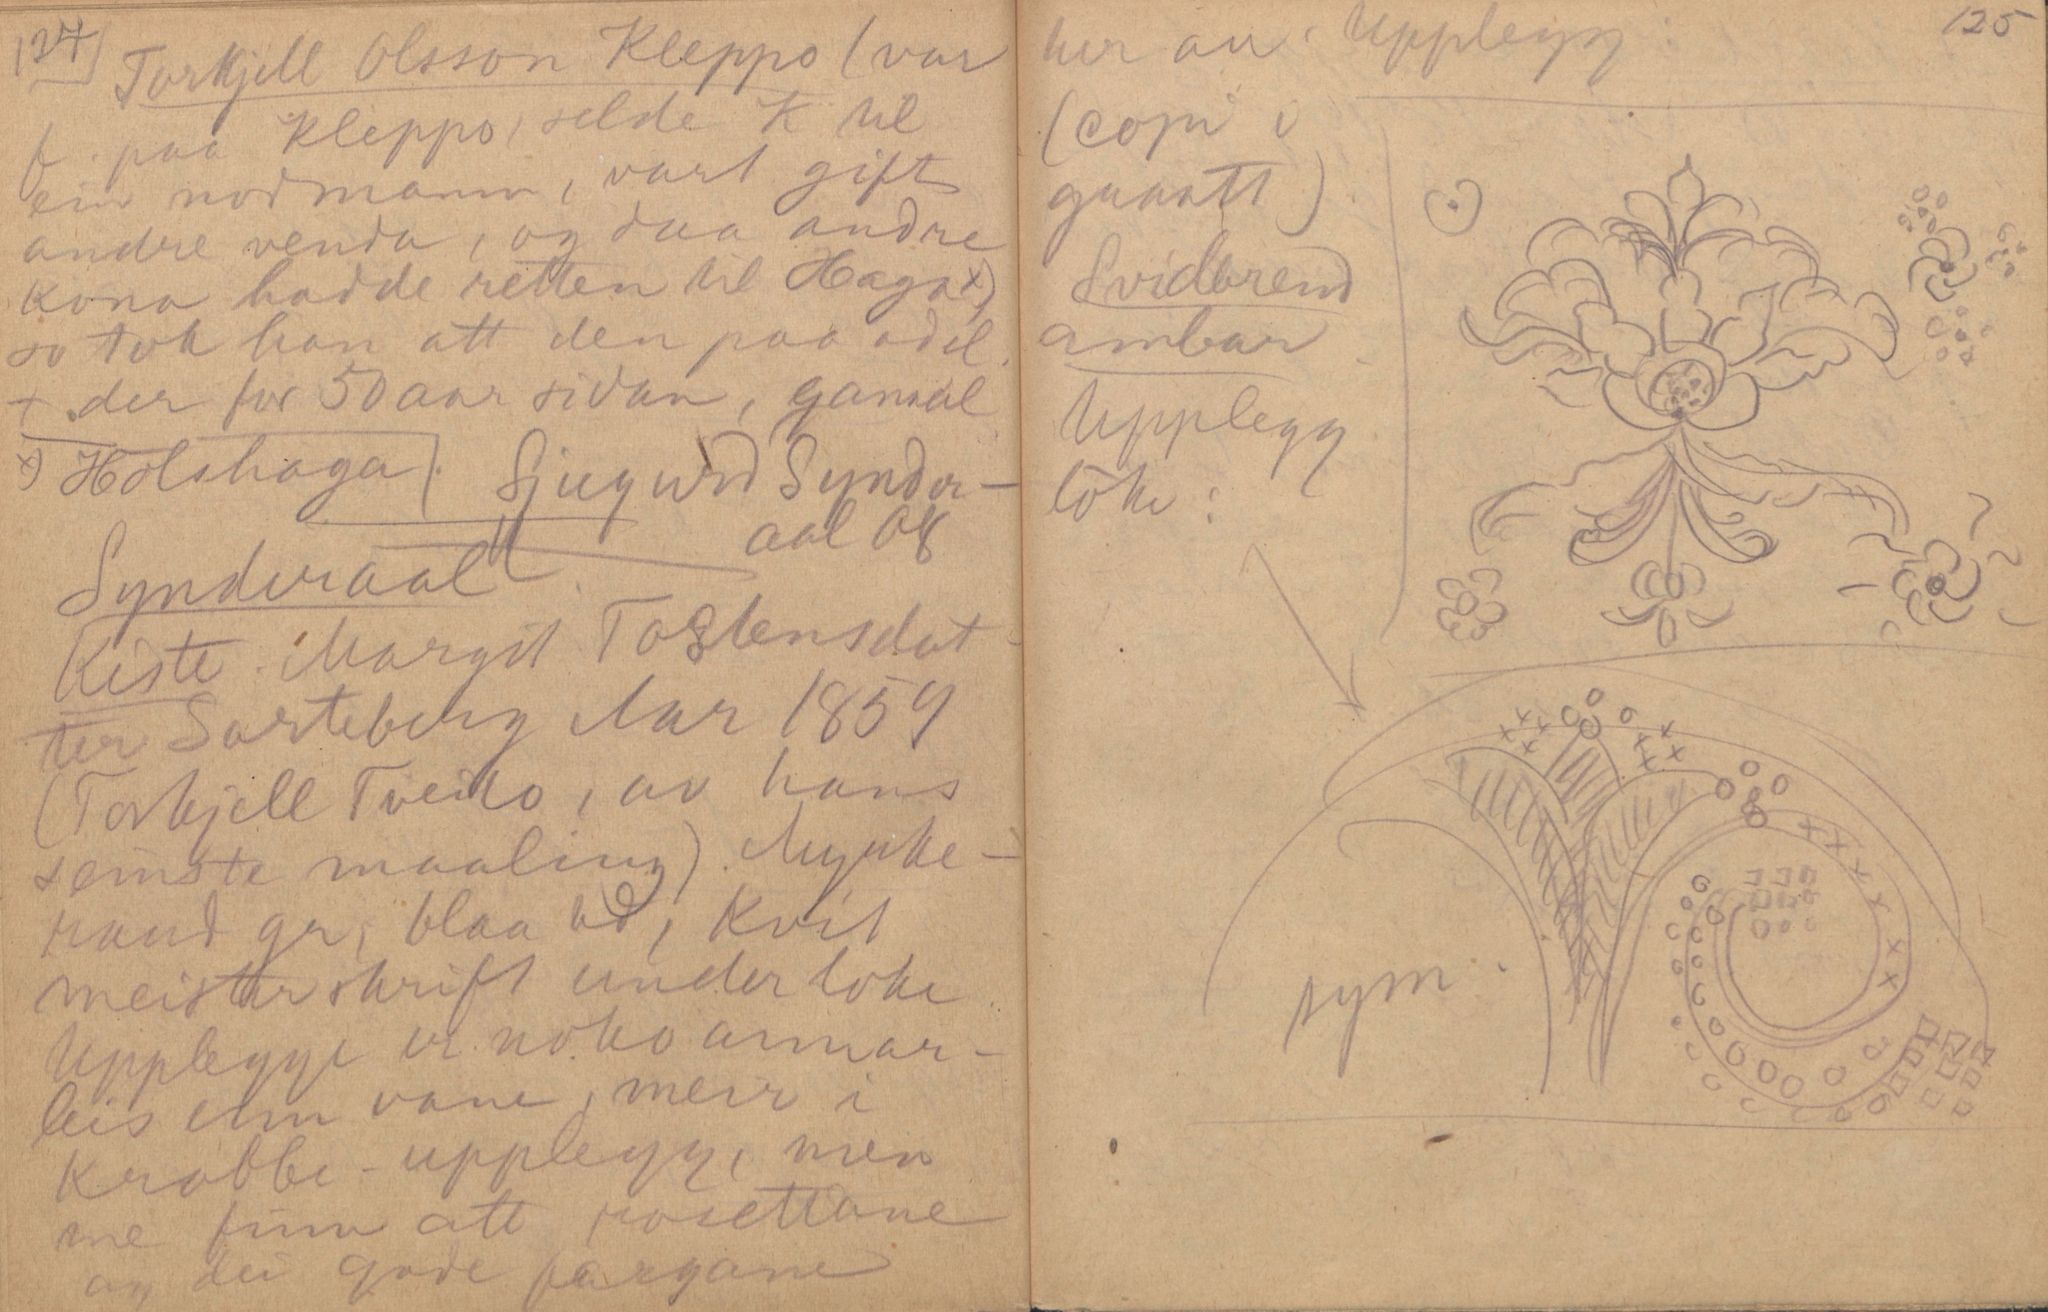 124
Torkjell Olsson Kleppo (var
f. paa Kleppo, selde K til
ein nordmann, vart gift
andre venda, og daa andre
kona hadde retten til Haga x)
so tok han att den paa odel.
+ der for 50 aar sidan, gamal
x) Holshaga). Sjugurd Synder-
aal
Synderaal
Kiste. Margit Tostensdat-
ter Sorteberg Aar 1859
(Torkjell Tveito, av hans
seinste maaling). Mynke-
rand gr, blaa bd, kvit
meisterskrift under loke.
Upplegge er noko annar-
leis enn vane, meir i
Krabbe-upplegg, men
me finn att rosettane
og dei gode fargane
125
her au. Upplegg:
(copi i
graatt).
Svidbrend
ambar.
Upplegg
loke:
sym.